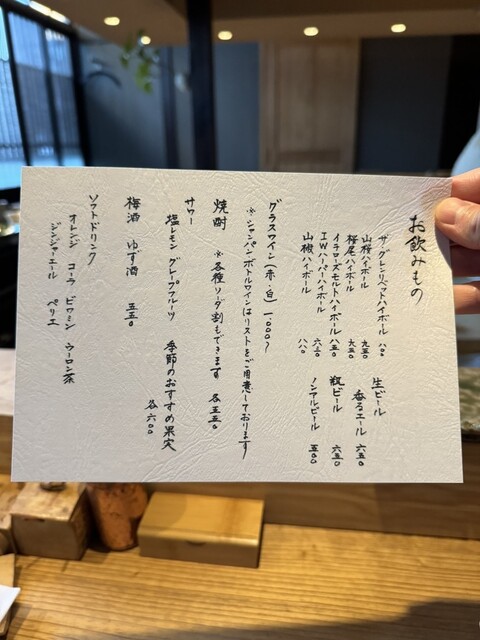 お飲みもの
ザ・グレンリベットハイボール
山桜ハイボール 九五〇
桜尾ハイボール 九五〇
イチローズモルトハイボール 八五〇
I.W.ハーパーハイボール
山椒ハイボール
生ビール
香るエール 六五〇
瓶ビール 六五〇
ノンアルビール 五〇〇
グラスワイン(赤・白) 一、〇〇〇〜
※シャンパン ボトルワインはリストをご用意しております
焼酎 ※各種ソーダ割もできます 各五五〇
サワー
塩レモン グレープフルーツ 季節のおすすめ果実
各六〇〇
梅酒 ゆず酒 五五〇
ソフトドリンク
オレンジ コーラ ビワミン ウーロン茶
ジンジャーエール ペリエ